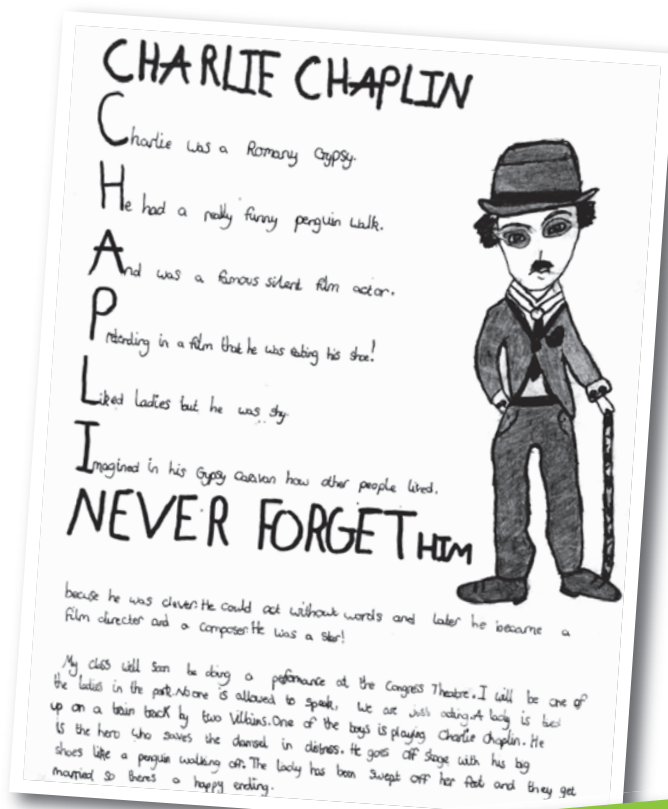 CHARLIE CHAPLIN
Charlie was a Romany Gypsy.
He had a really funny penguin walk.
And was a famous silent film actor.
Pretending in a film that he was eating his shoe!
Liked ladies but he was shy.
Imagined in his Gypsy Caravan how other people lived.
NEVER FORGET HIM
because he was clever. He could act without words and later he became a
film director and a composer. He was a star!
My class will soon be doing a performance at the Congress Theatre. I will be one of
the ladies in the park. No one is allowed to speak, we are just acting. A lady is tied
up on a train track by two villains. One of the boys is playing Charlie Chaplin. He
is the hero who saves the damsel in distress. He goes off stage with his big
shoes like a penguin walking off. The lady has been swept off her feet and they get
married so theres a happy ending.